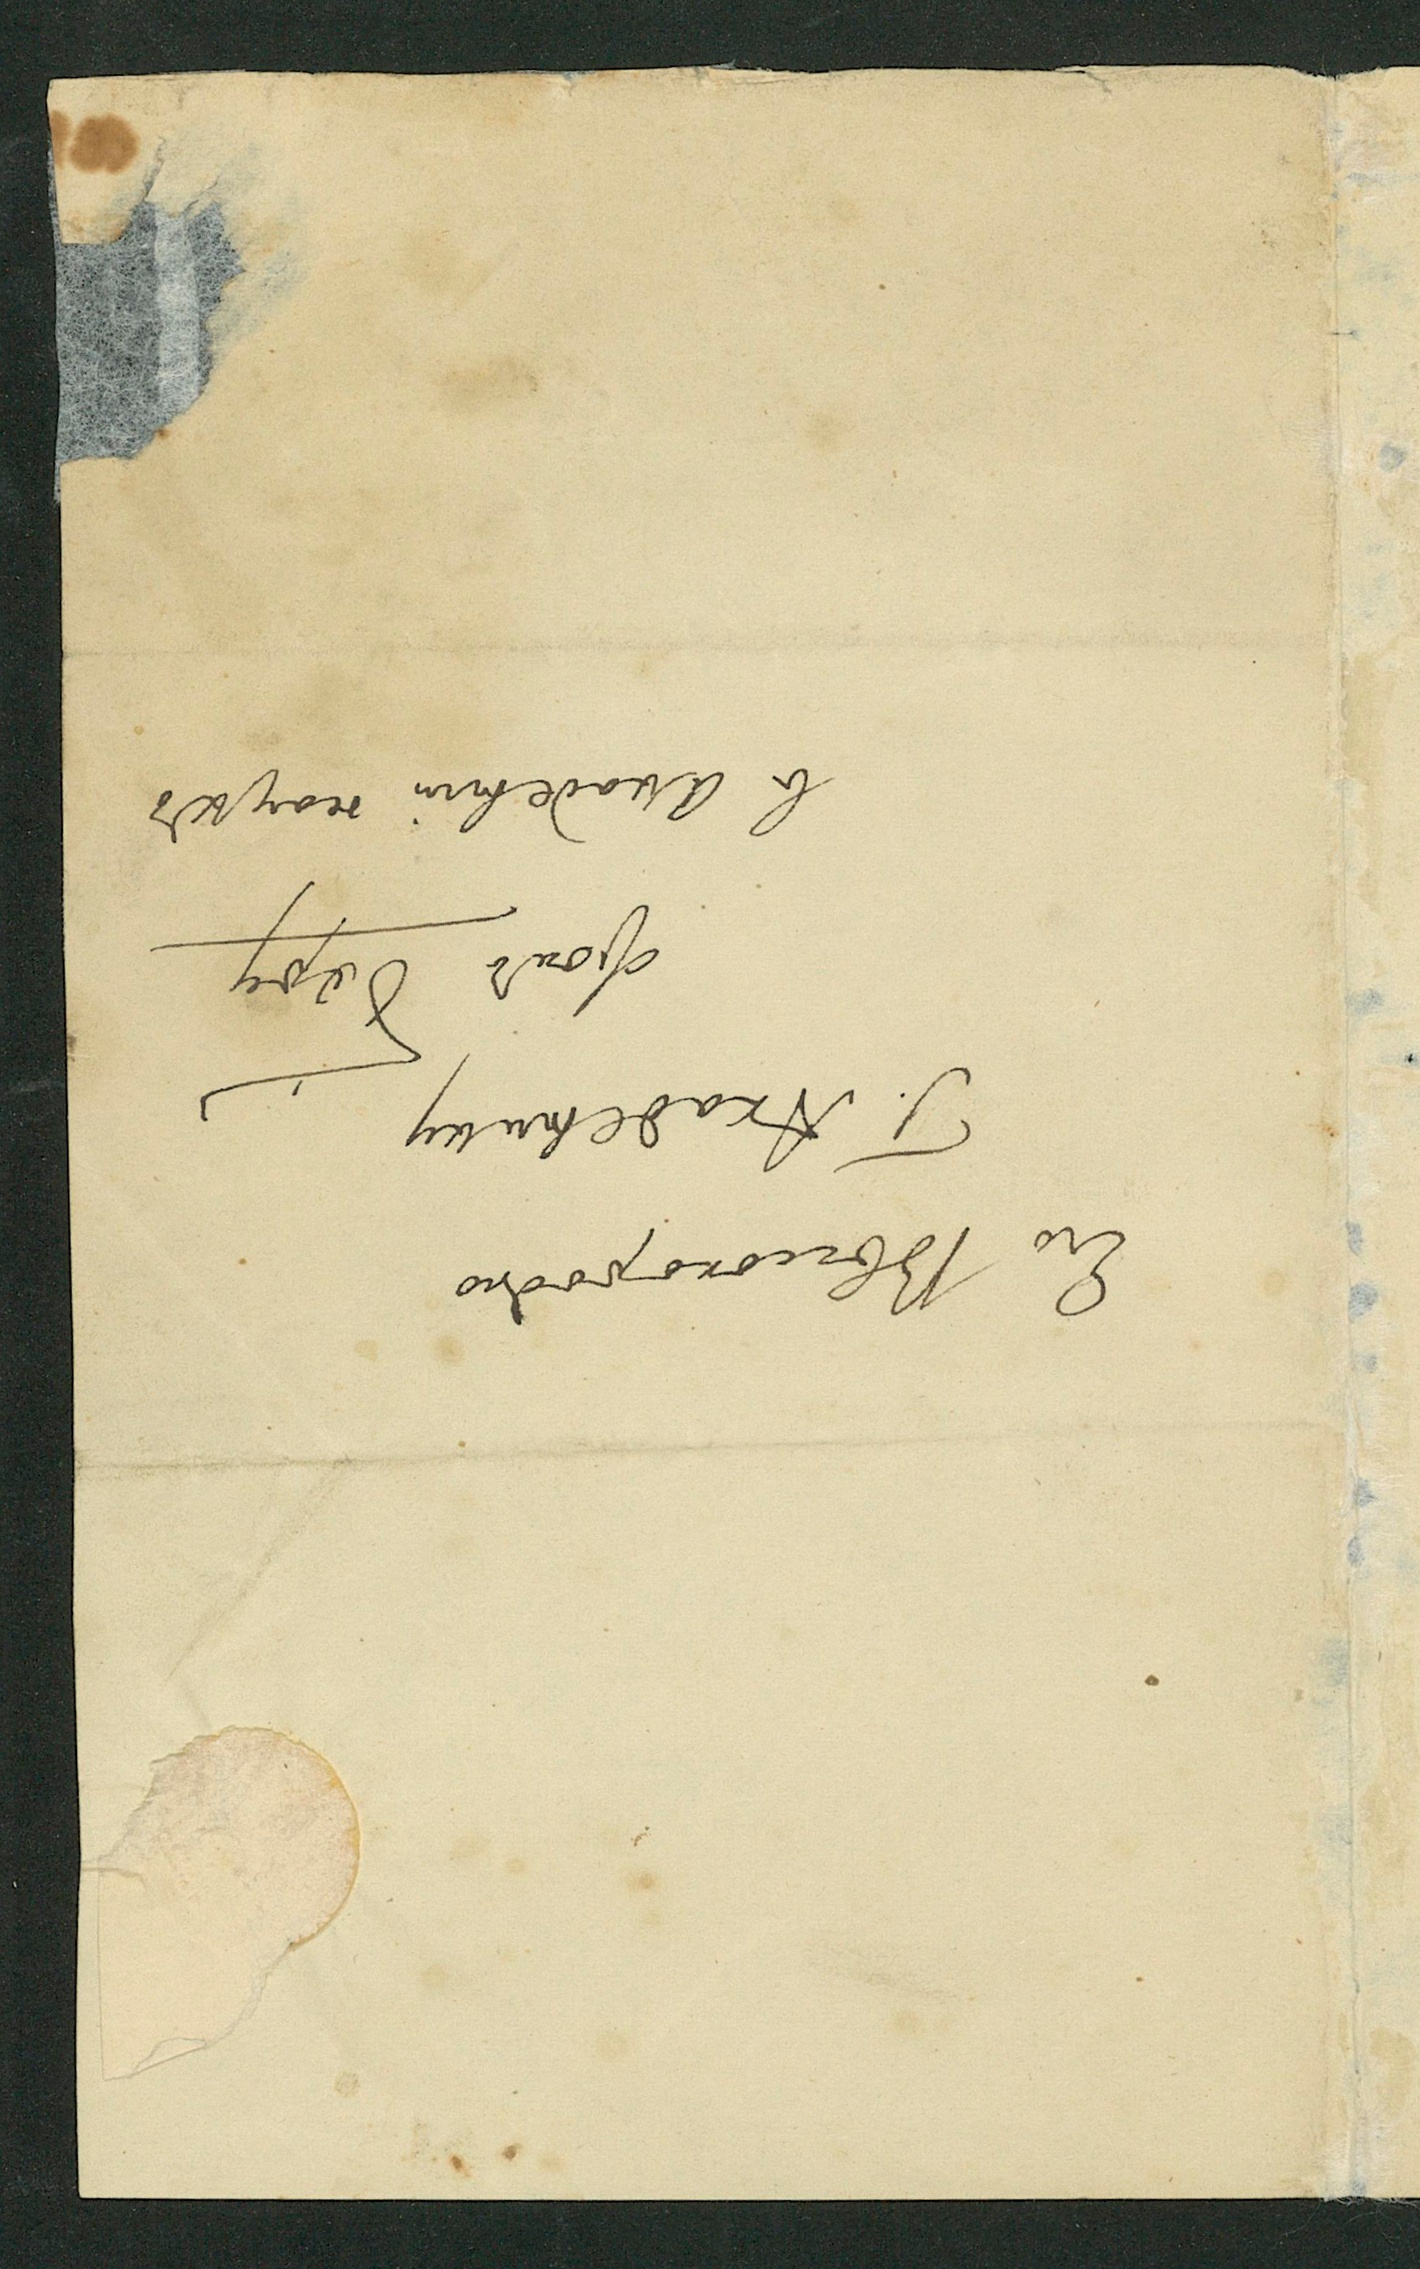 Его Высокородію
Г. Академику
фонъ Бэру
въ Академіи наукъ